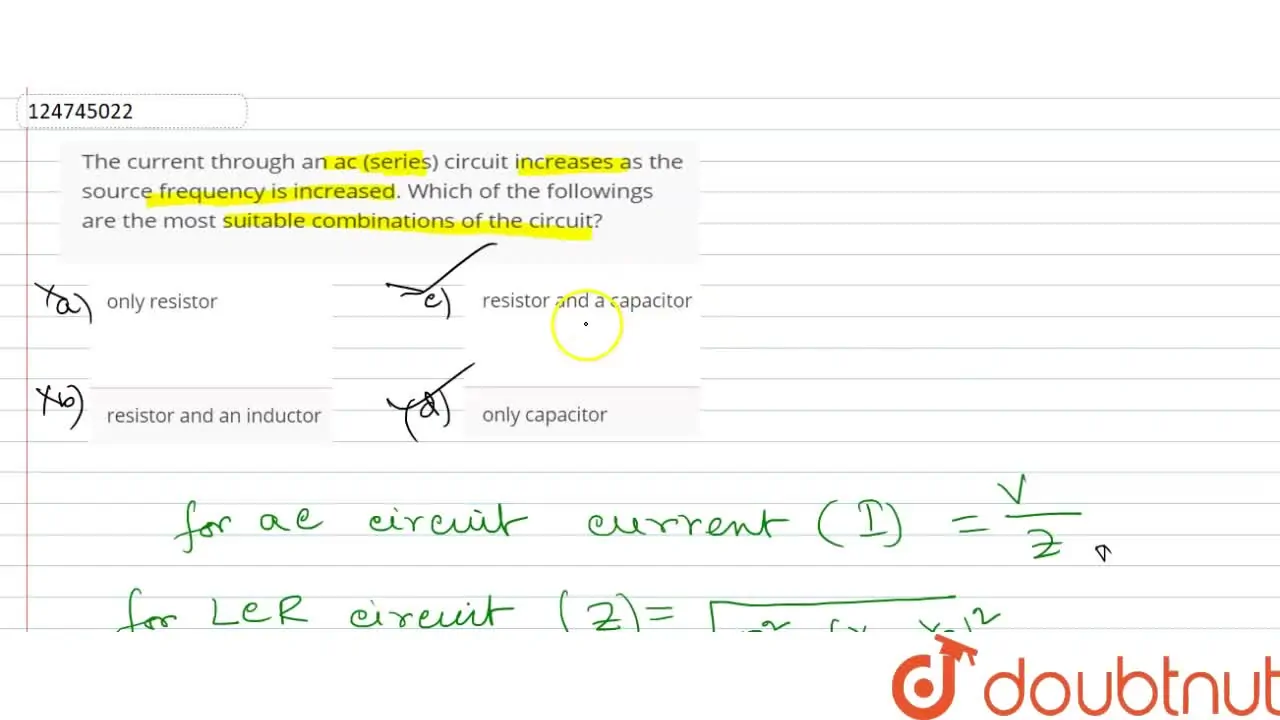 124745022
The current through an ac (series) circuit increases as the
source frequency is increased. Which of the followings
are the most suitable combinations of the circuit?
a) only resistor
c) resistor and a capacitor
b) resistor and an inductor
(d) only capacitor
for ac circuit current (I) = V/Z
for LCR circuit (Z) =
doubtnut